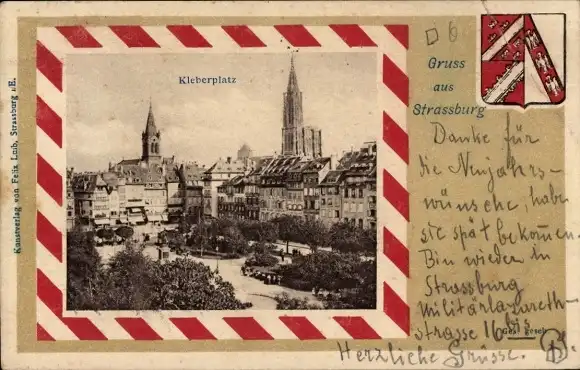 Kleberplatz
Gruss
aus
Strassburg
Kunstverlag von Felix Luib, Strassburg i.E.
Danke für
die Neujahrs-
wünsche, habe
sie spät bekommen.
Bin wieder in
Strassburg
Militärlazareth-
strasse 16 bis
Ges. gesch.
Herzliche Grüsse.